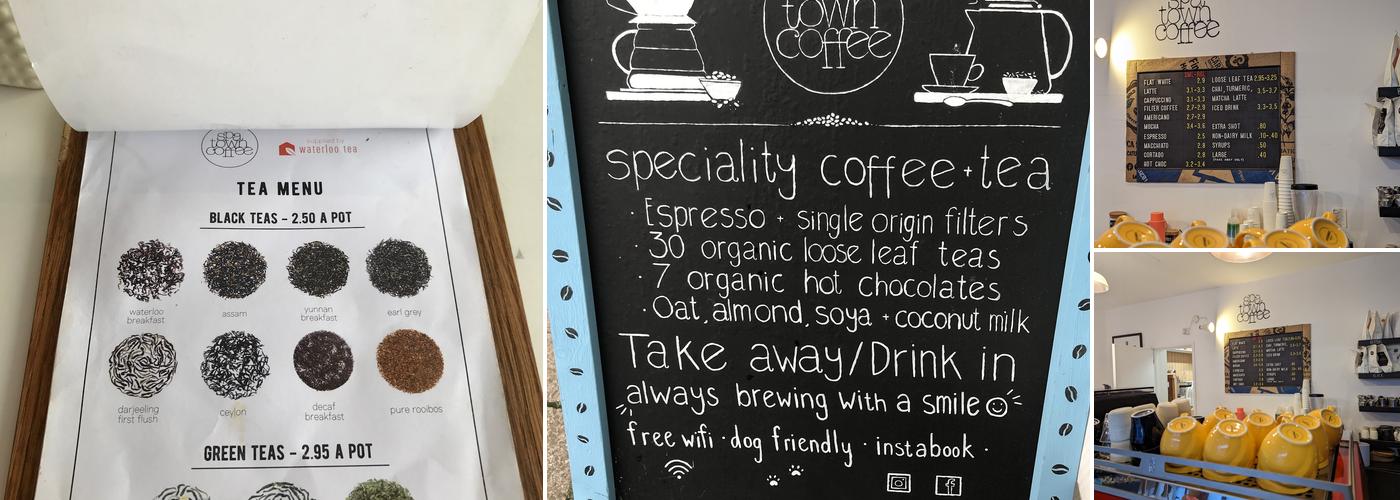 spa
town
coffee
supplied by
waterloo tea
TEA MENU
BLACK TEAS - 2.50 A POT
waterloo
breakfast
assam
yunnan
breakfast
earl grey
darjeeling
first flush
ceylon
decaf
breakfast
pure rooibos
GREEN TEAS - 2.95 A POT
town
coffee
speciality coffee + tea
· Espresso + single origin filters
· 30 organic loose leaf teas
· 7 organic hot chocolates
· Oat, almond, soya + coconut milk
Take away/Drink in
always brewing with a smile
free wifi · dog friendly · instabook ·
spa
town
coffee
FLAT WHITE 2.9
LATTE 3.1-3.3
CAPPUCCINO 3.1-3.3
FILTER COFFEE 2.7-2.9
AMERICANO 2.7-2.9
MOCHA 3.4-3.6
ESPRESSO 2.5
MACCHIATO 2.8
CORTADO 2.8
HOT CHOC 3.2-3.4
LOOSE LEAF TEA 2.95-3.25
CHAI, TURMERIC,
MATCHA LATTE 3.5-3.7
ICED DRINK 3.3-3.5
EXTRA SHOT .80
NON-DAIRY MILK .10-.40
SYRUPS .50
LARGE .40
spa
town
coffee